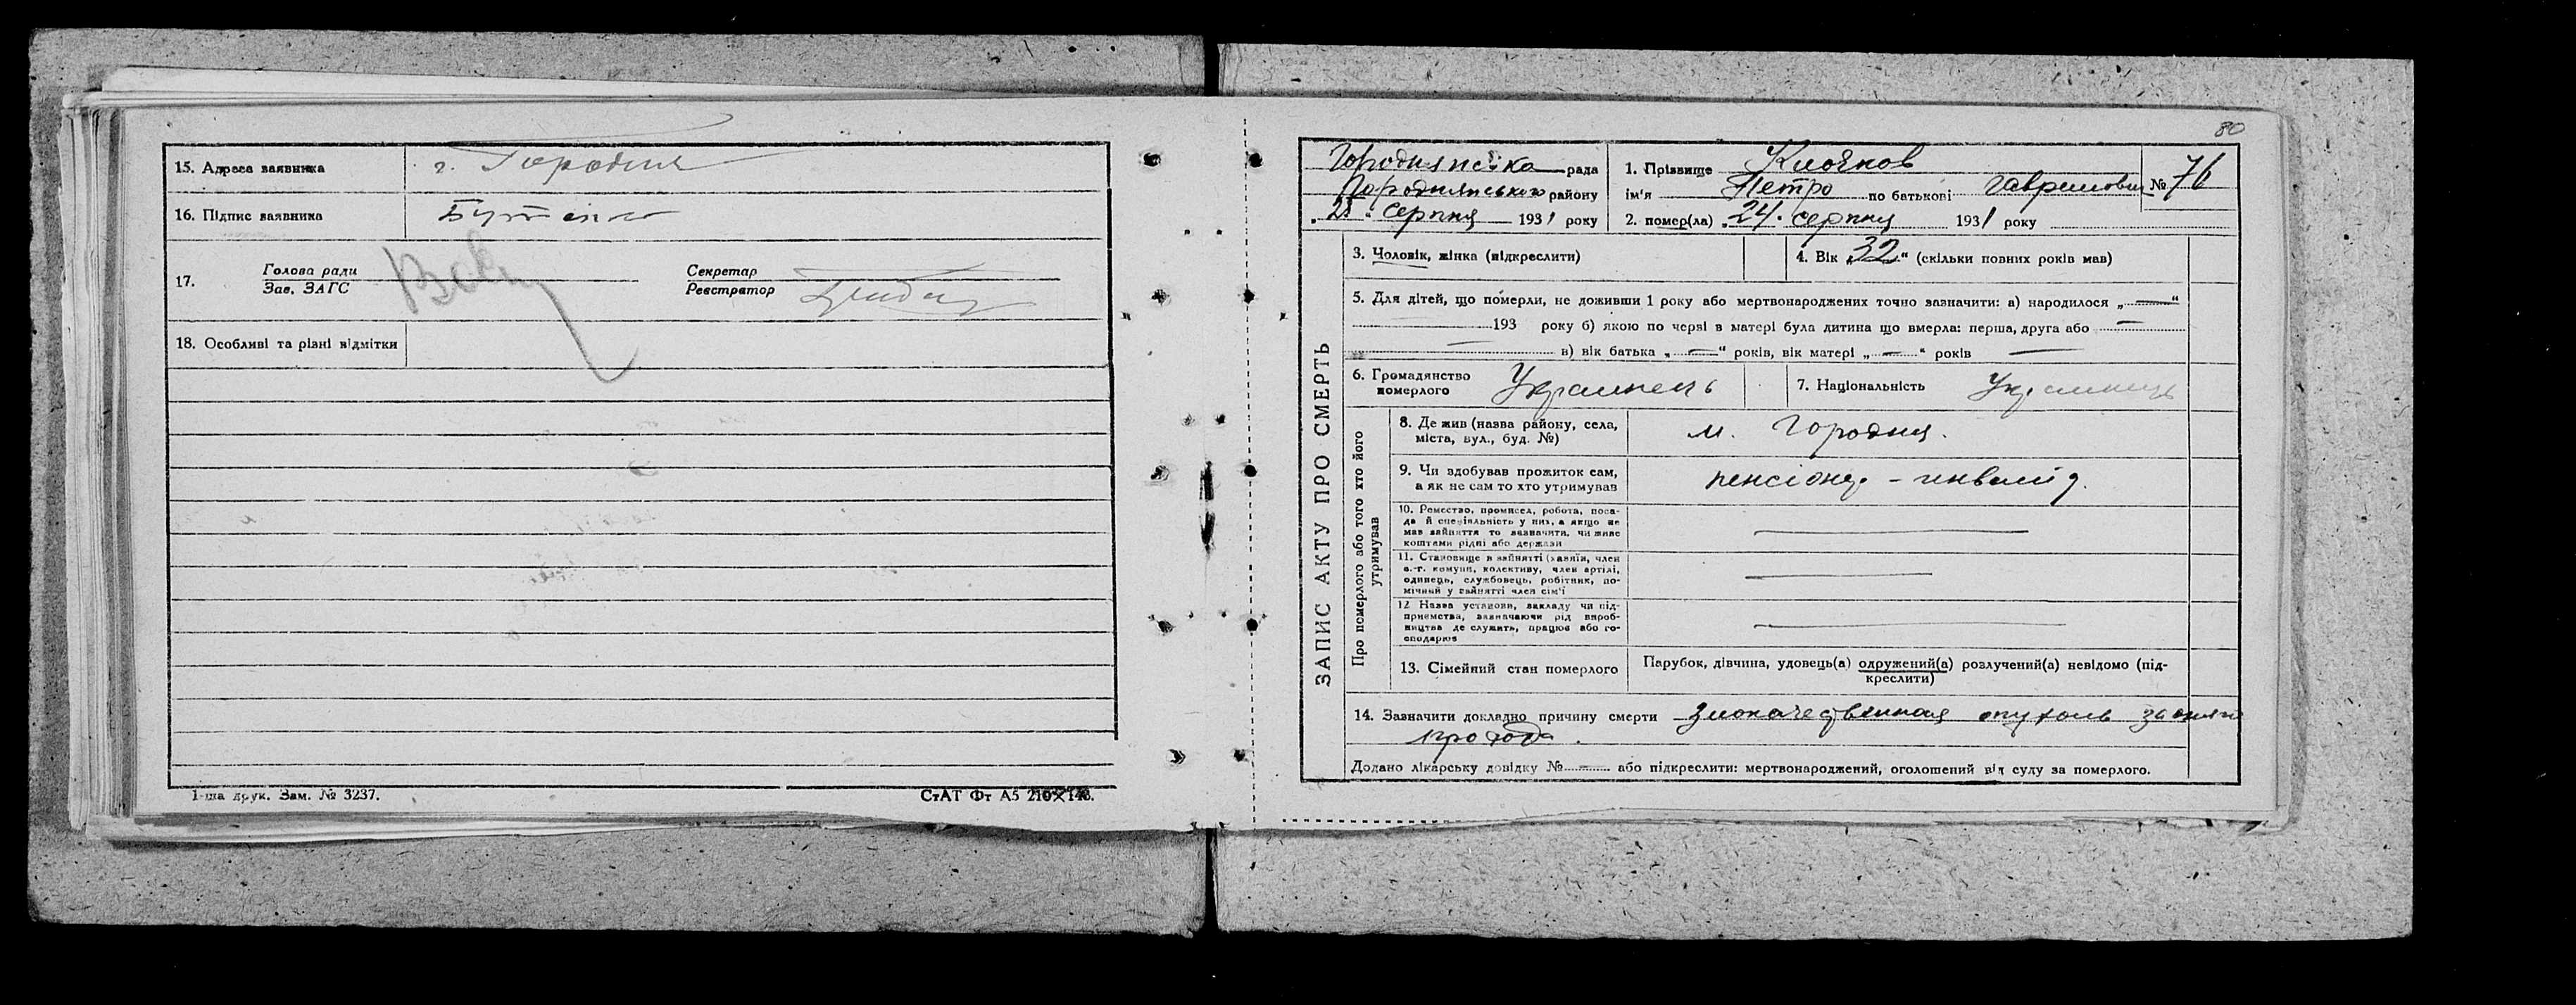 15. Адреса заявника г. Городня
16. Підпис заявника Бутенко
17. Голова ради
Зав. ЗАГС
Секретар
Реєстратор
18. Особливі та різні відмітки
1-ша друк. Зам. № 3237.
СтАТ Фт А5 210×148.
80
Городнянська рада
Городнянського району
„25“ серпня 1931 року
1. Прізвище Клочков
ім'я Петро по батькові Гаврилович
№ 76
2. помер(ла) „24“ серпня 1931 року
ЗАПИС АКТУ ПРО СМЕРТЬ
3. Чоловік, жінка (підкреслити)
4. Вік „32“ (скільки повних років мав)
5. Для дітей, що померли, не доживши 1 року або мертвонароджених точно зазначити: а) народилося „—“
193 року б) якою по черзі в матері була дитина що вмерла: перша, друга або —
— в) вік батька „—“ років, вік матері „—“ років —
6. Громадянство
померлого
Украинець
7. Національність Украинець
Про померлого або того хто його
утримував
8. Де жив (назва району, села,
міста, вул., буд. №)
м. Городня.
9. Чи здобував прожиток сам,
а як не сам то хто утримував
пенсіонер - инвалід.
10. Ремество, промисел, робота, поса-
да й спеціяльність у них, а якщо не
мав зайняття то зазначити, чи живе
коштами рідні або держави
11. Становище в зайнятті (хазяїн, член
с.-г. комуни, колективу, член артілі,
одинець, службовець, робітник, по-
мічний у зайнятті член сім'ї
12 Назва установи, закладу чи під-
приємства, зазначаючи рід вироб-
ництва де служить, працює або го-
сподарює
13. Сімейний стан померлого
Парубок, дівчина, удовець(а) одружений(а) розлучений(а) невідомо (під-
креслити)
14. Зазначити докладно причину смерти злокачественная опухоль заднего
прохода.
Додано лікарську довідку № — або підкреслити: мертвонароджений, оголошений від суду за померлого.